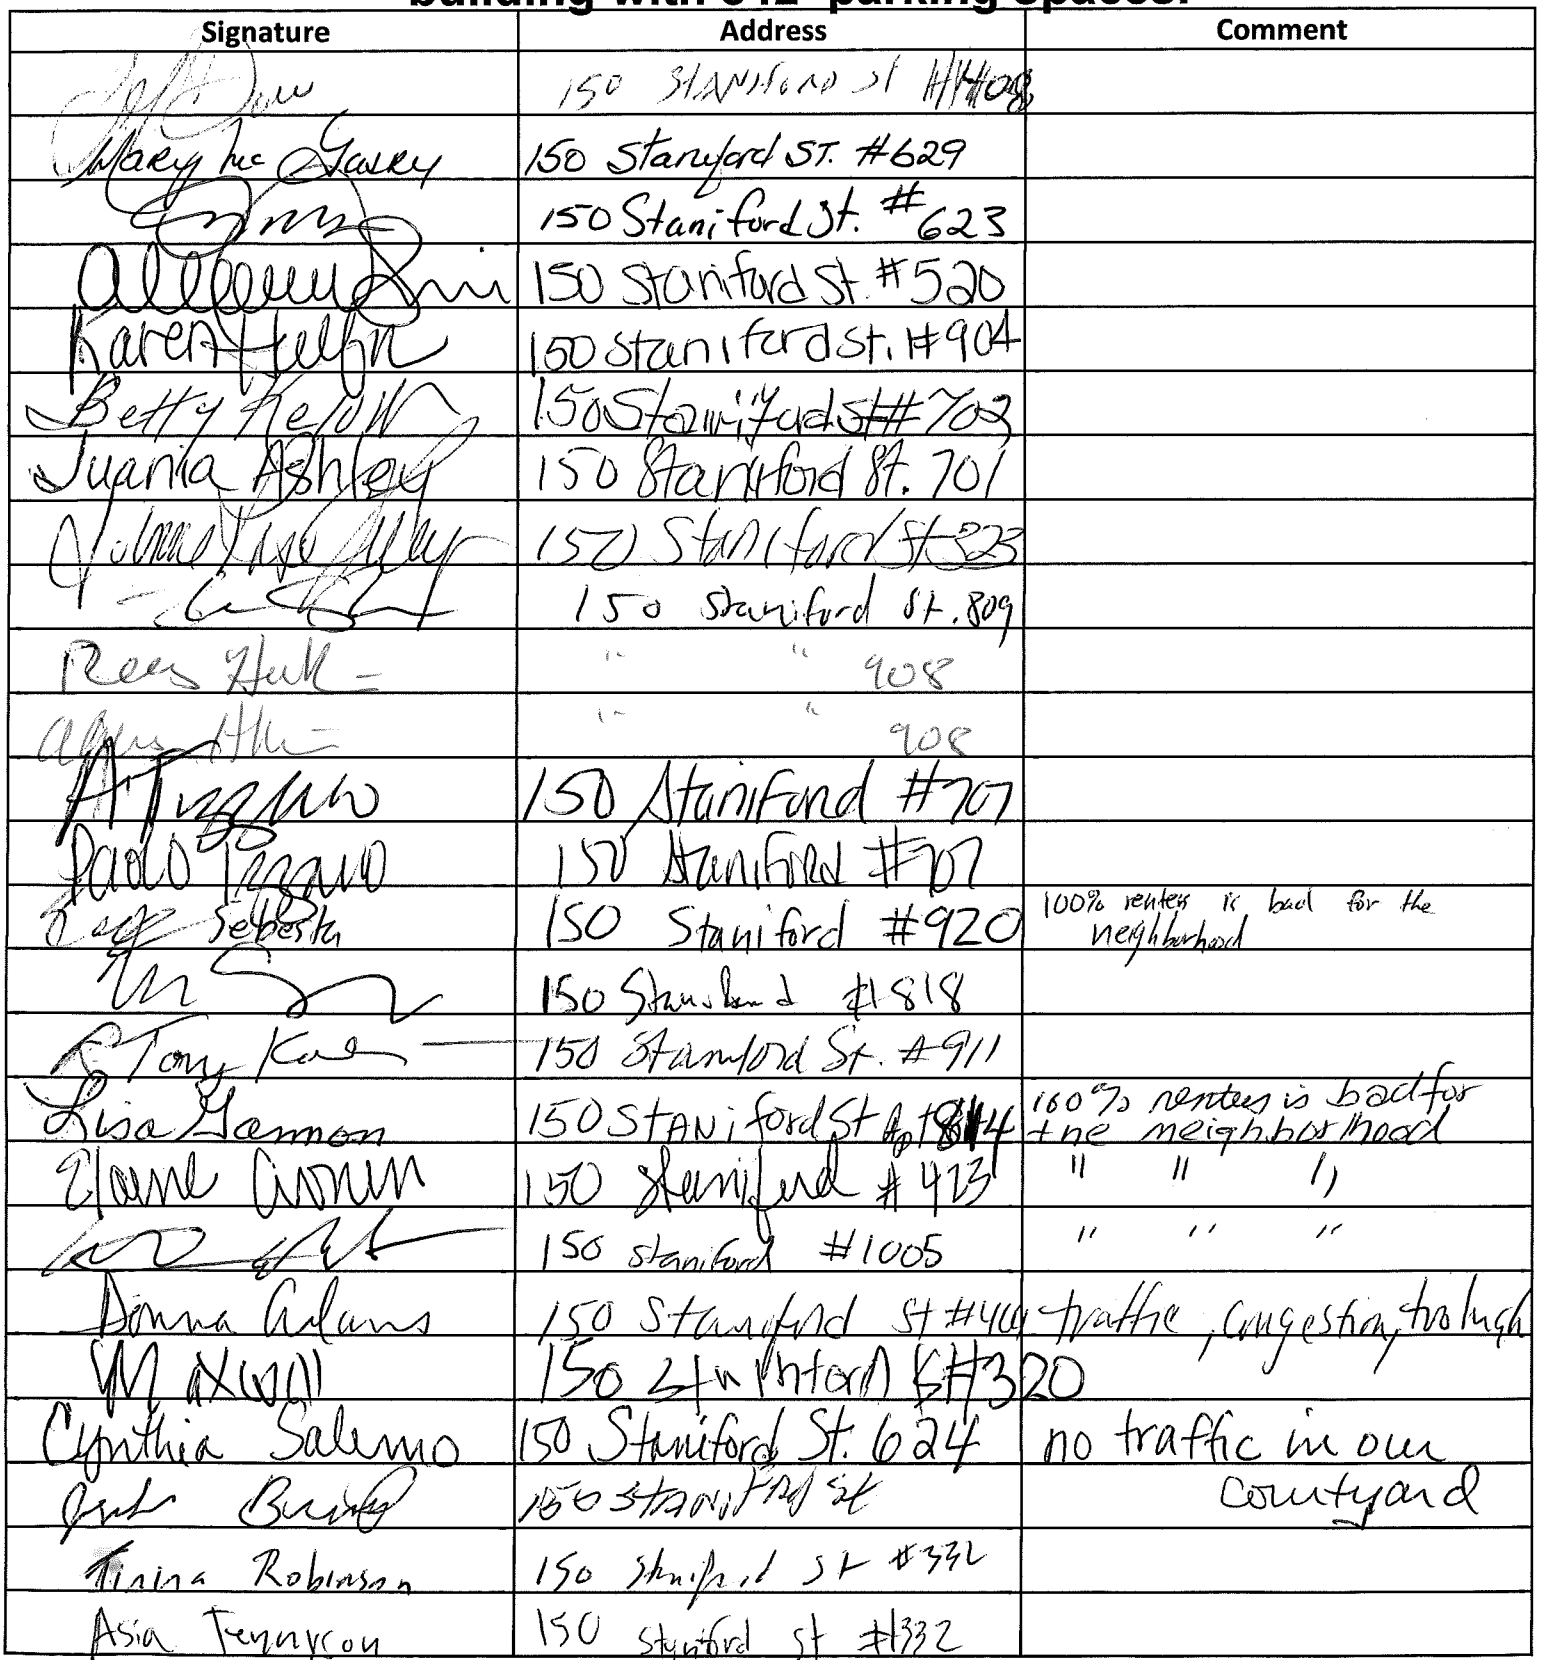 building with parking spaces.
Signature Address Comment
150 STANIFORD St
Mary Mc Garry 150 Staniford ST. #629
150 Staniford St. #623
150 Staniford St. #520
Karen 150 Staniford st. #904
Betty 150 Staniford St #702
Juanita Ashley 150 Staniford St. 701
150 Staniford St 323
150 Staniford St. 809
" " 908
" " 908
A Tizzano 150 Staniford #707
Paolo Tizzano 150 Staniford #707
Sebesta 150 Staniford #920 100% renters is bad for the
neighborhood
150 Staniford #818
Tony 150 Staniford St. #911
Lisa Gannon 150 STANiford St Apt 814 100% renters is bad for
the neighborhood
Elaine Cronin 150 Staniford #423 " " "
150 Staniford #1005 " " "
Donna Adams 150 Staniford St traffic, congestion, too high
Maxwell 150 Staniford St #320
Cynthia Salemo 150 Staniford St. 624 no traffic in our
150 STANIFORD St courtyard
Tinina Robinson 150 Staniford St #332
Asia Tennyson 150 Staniford st #332